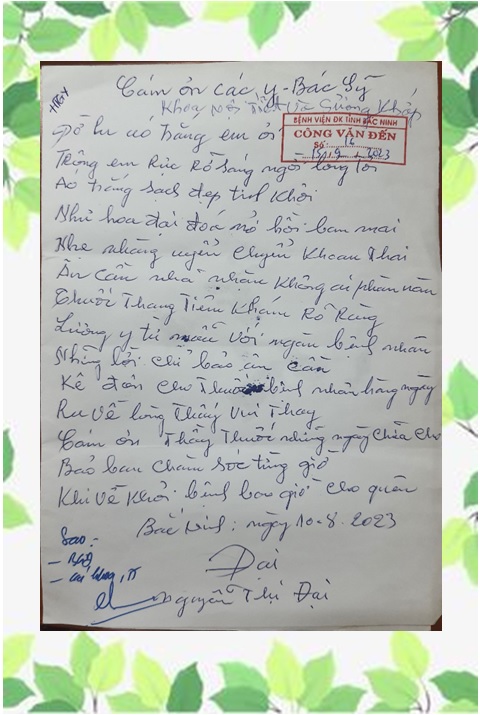 Cám ơn các y-Bác Sỹ
Khoa Nội Tiết và Cương Khớp
BỆNH VIỆN ĐK TỈNH BẮC NINH
CÔNG VĂN ĐẾN
Số: 14
2023
áo trắng em ơi
Trông em Rực Rỡ sáng ngời lòng tôi
Áo trắng sạch đẹp tinh Khôi
Như hoa đại đoá nở hồi ban mai
Nhẹ nhàng uyển chuyển Khoan Thai
Ân cần nhã nhặn không ai phàn nàn
Thuốc Thang Tiêm Khám Rõ Ràng
Lương y từ mẫu với ngàn bệnh nhân
Những lời chỉ bảo ân cần
Kê đơn cho Thuốc bệnh nhân hàng ngày
Ra về lòng Thấy Vui Thay
Cám ơn Thầy Thuốc những ngày chữa cho
Bảo ban chăm sóc từng giờ
Khi về khỏi bệnh bao giờ cho quên
Bắc Ninh: ngày 10-8-2023
Sao:
- BGĐ
Đại
Nguyễn Thị Đại